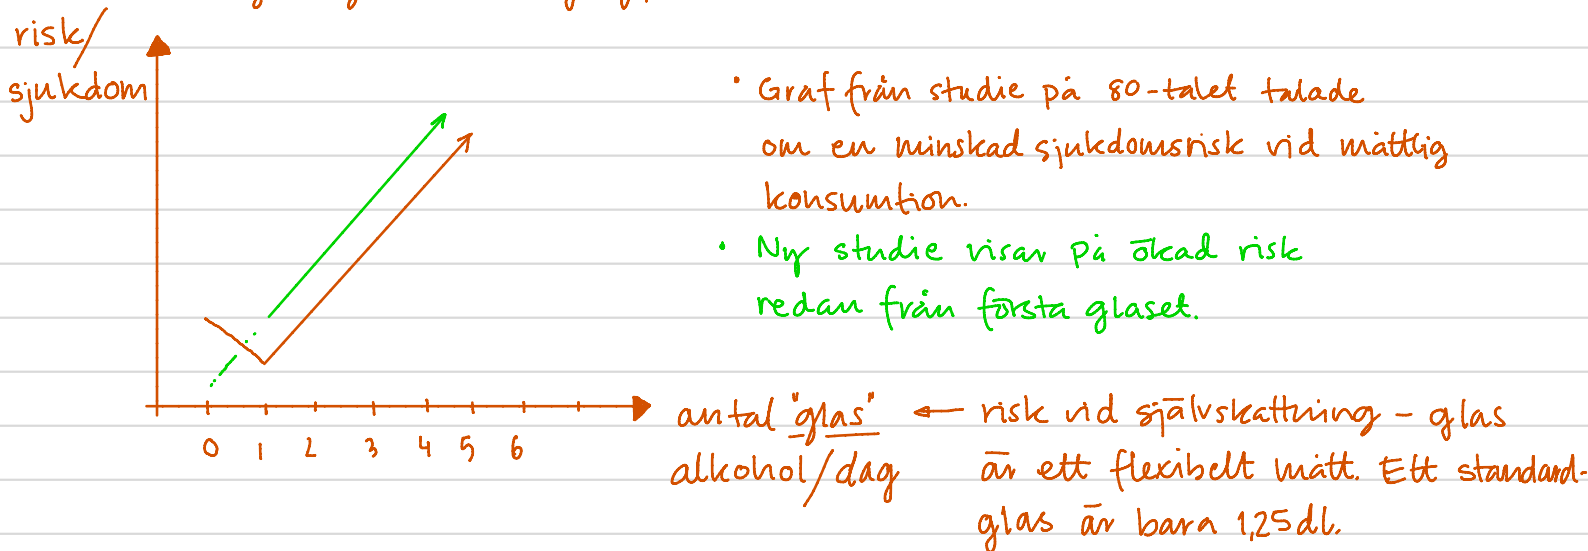 risk/
sjukdom
• Graf från studie på 80-talet talade
om en minskad sjukdomsrisk vid måttlig
konsumtion.
• Ny studie visar på ökad risk
redan från första glaset.
0 1 2 3 4 5 6
antal "glas" ← risk vid självskattning - glas
alkohol/dag är ett flexibelt mått. Ett standard-
glas är bara 1,25 dl.